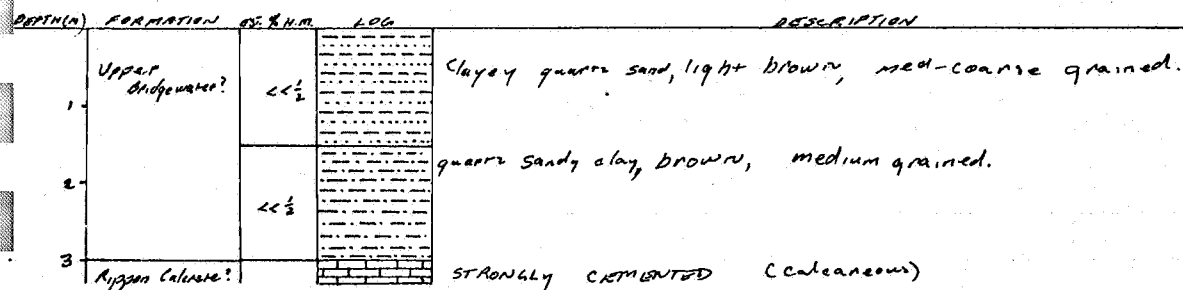 DEPTH(M) FORMATION est. % H.M. LOG DESCRIPTION
Upper Bridgewater? <<½ Clayey quartz sand, light brown, med-coarse grained.
1
quartz sandy clay, brown, medium grained.
2
<<½
3
Ripson Calcrete? STRONGLY CEMENTED (calcareous)